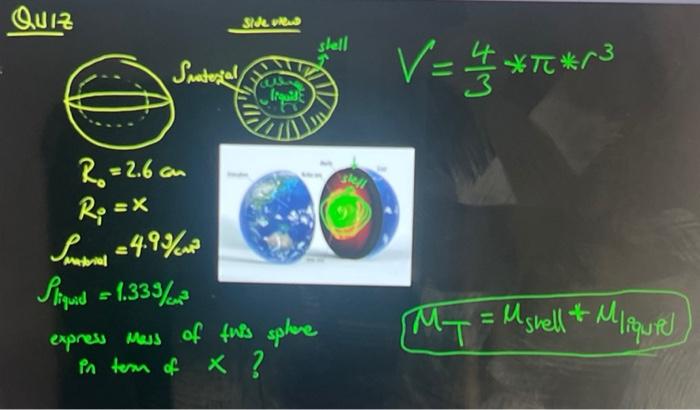 QUIZ
side view
shell
ρmaterial
liquid
V = 4/3 * π * r³
R₀ = 2.6 cm
Rᵢ = x
ρmaterial = 4.9 g/cm³
ρliquid = 1.33 g/cm³
express mass of this sphere
in term of x ?
shell
M_T = M shell + M liquid